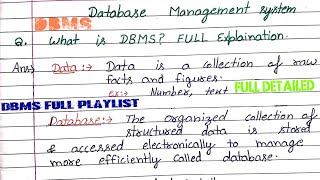 Database Management system
DBMS
Q. What is DBMS? FULL Explaination.
Ans) Data :-> Data is a collection of raw
facts and figures.
ex:- Number, text
FULL DETAILED
DBMS FULL PLAYLIST
Database:-> The organized collection of
structured data is stored
& accessed electronically to manage
more efficiently called database.